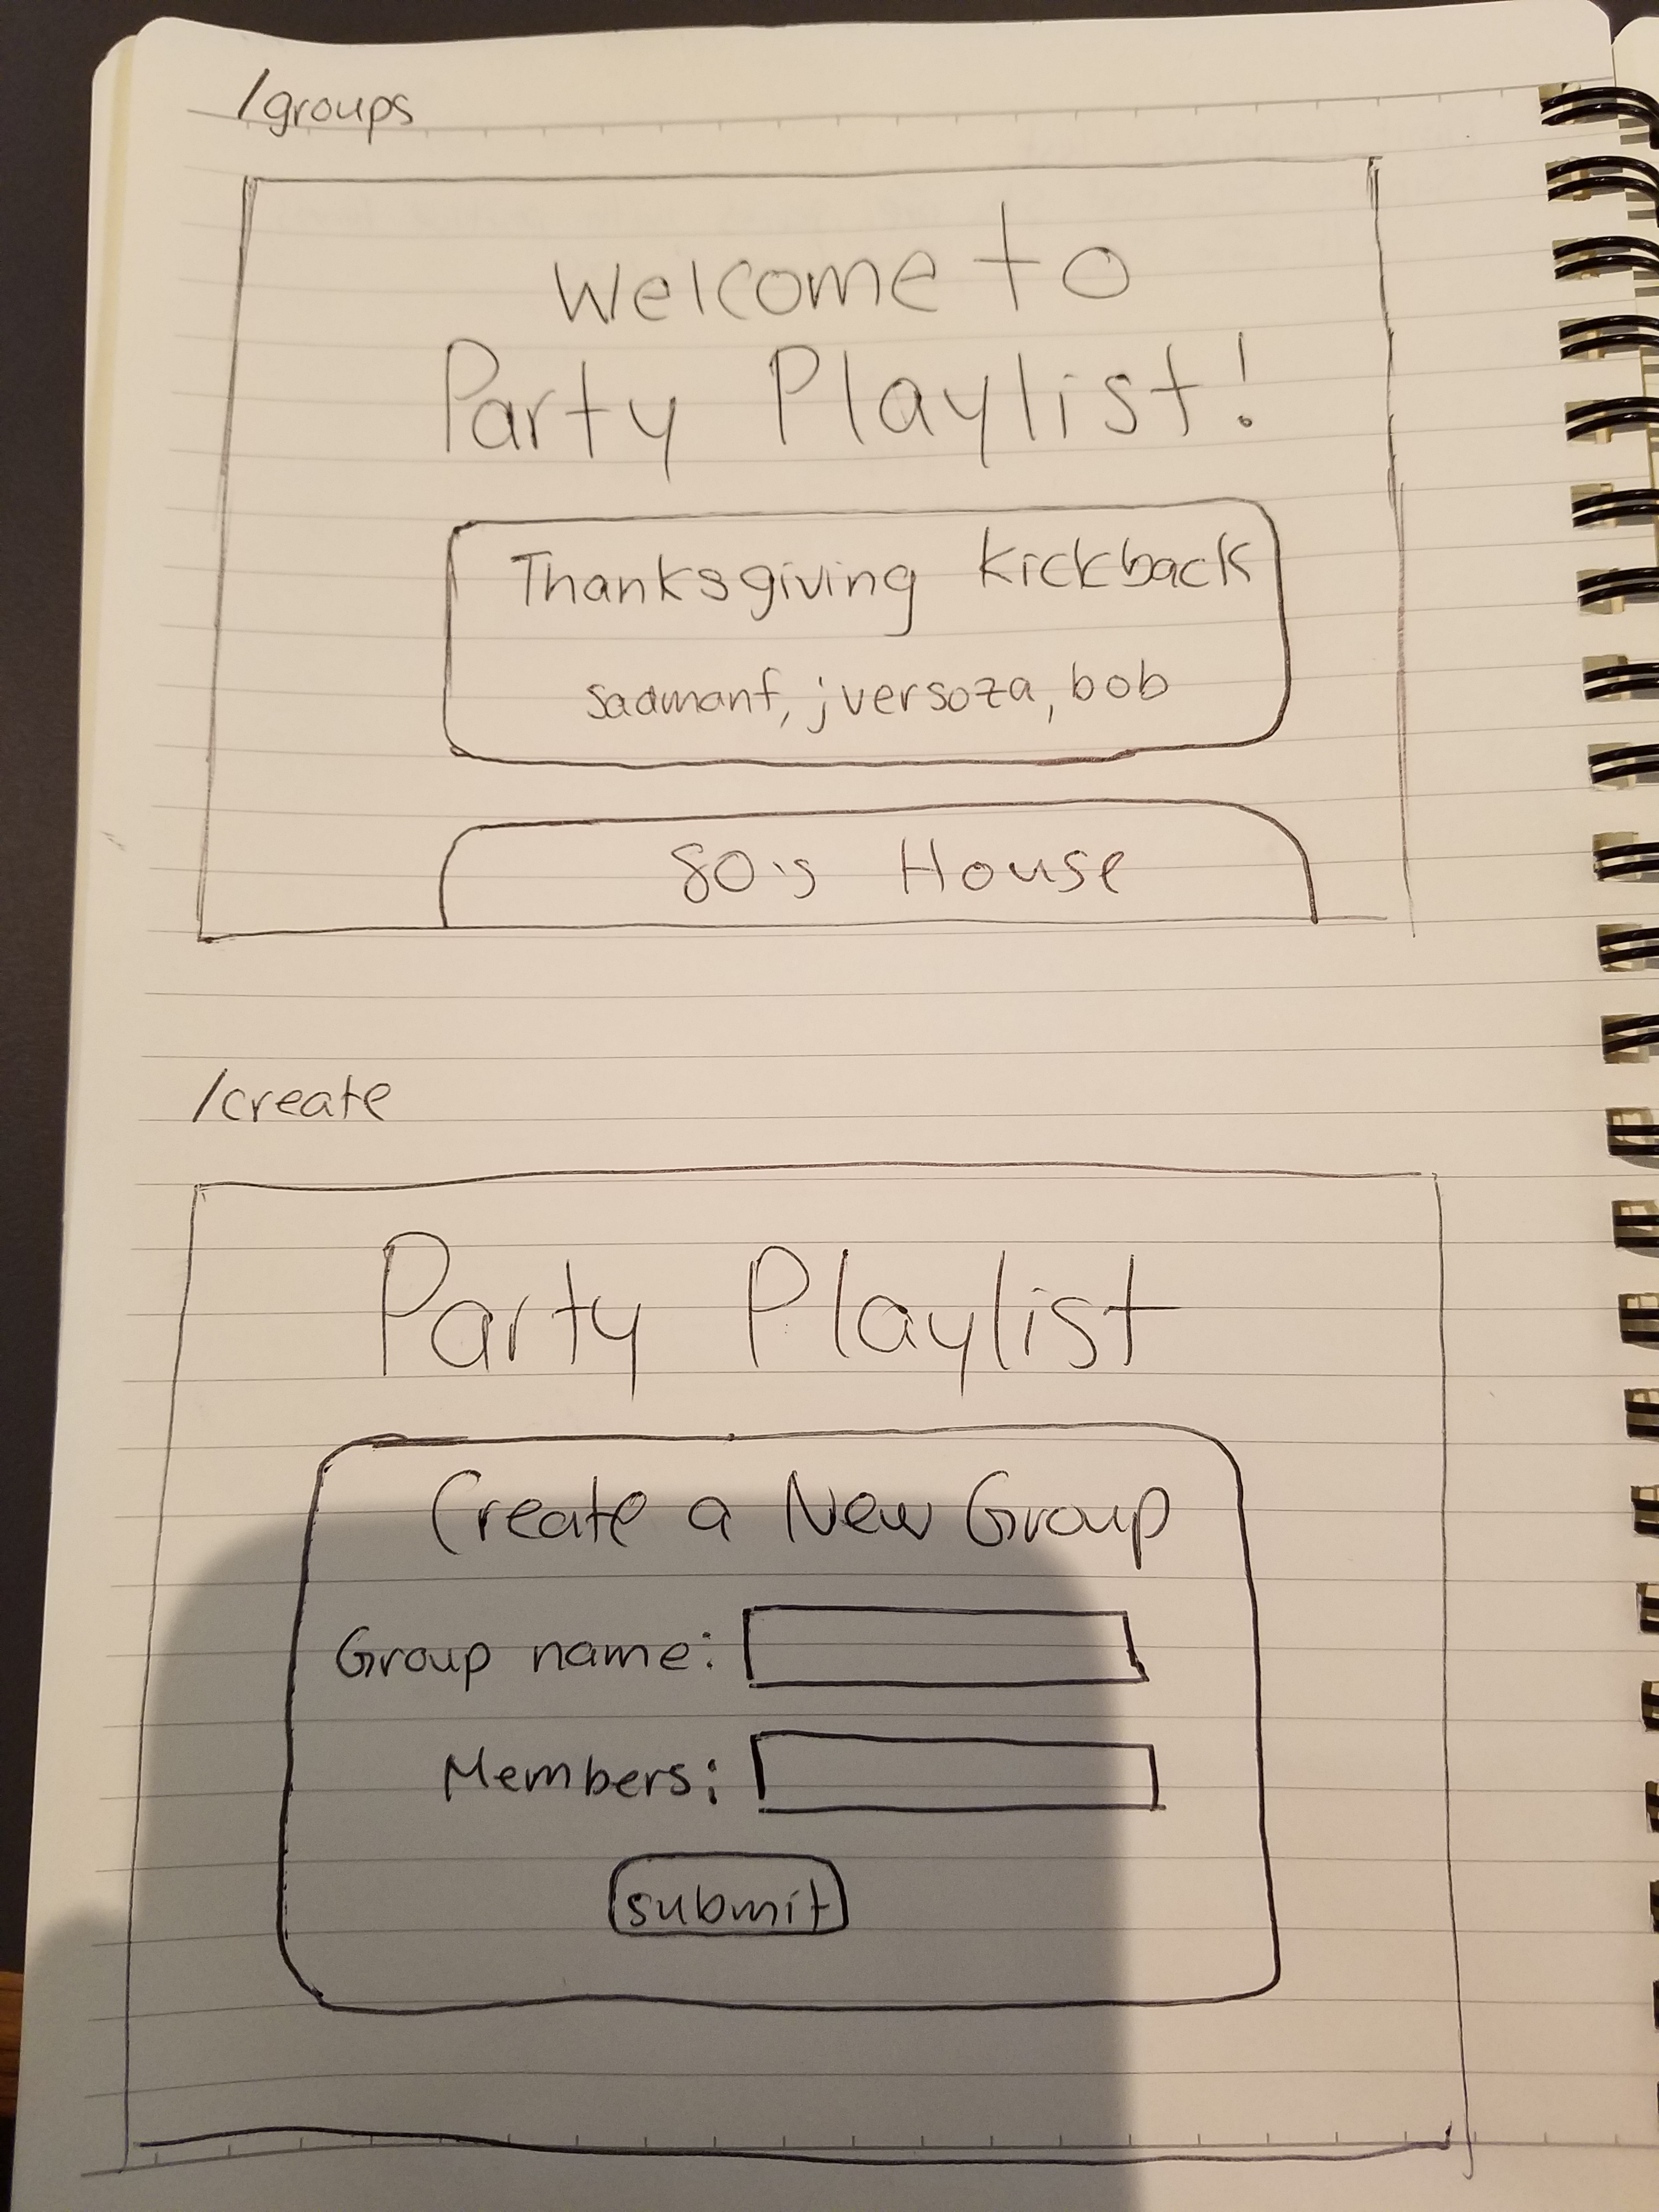 /groups
Welcome to
Party Playlist!
Thanksgiving Kickback
sadmanf, jversoza, bob
80's House
/create
Party Playlist
Create a New Group
Group name:
Members:
submit